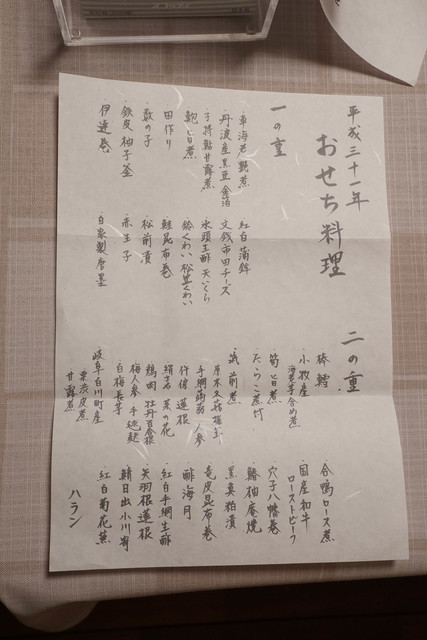 平成三十一年
おせち料理
一の重
車海老艶煮
丹波産黒豆金箔
子持鮎甘露煮
鮑旨煮
田作り
数の子
鉄皮柚子釜
伊達巻
紅白蒲鉾
文銭市田チーズ
氷頭生酢天いくら
鈴くわい松笠くわい
鮭昆布巻
松前漬
赤玉子
自家製唐墨
二の重
棒鱈
小牧産
海老芋含め煮
筍旨煮
たらこ煮付
筑前煮
厚木久菇握手
手綱蒟蒻人参
竹俵蓮根
絹さや菜の花
鶏肉牡丹百合根
梅人参手毬麩
白梅長芋
岐阜白川町産
栗渋皮煮
甘露煮
合鴨ロース煮
国産和牛
ローストビーフ
穴子八幡巻
鰆柚庵焼
黒真粕漬
竜皮昆布巻
酢海月
紅白手綱生酢
矢羽根蓮根
鯖日出小川寄
紅白菊花蕪
ハラン